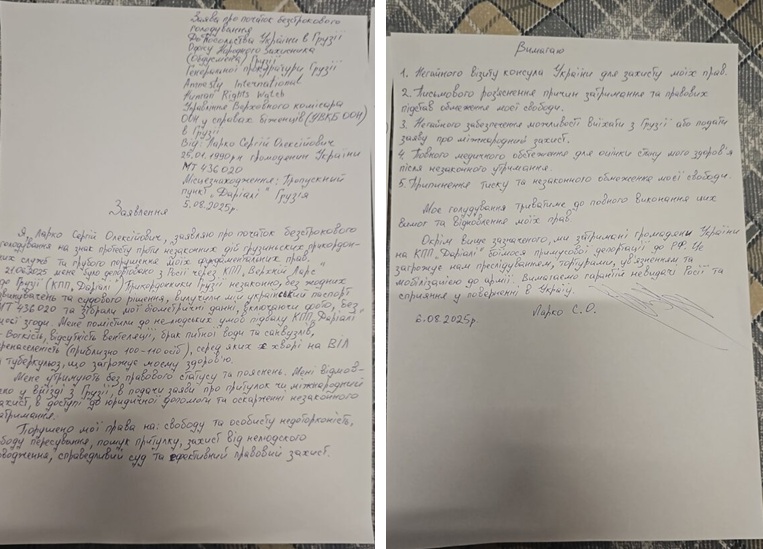 Заява про початок безстрокового
голодування
До Посольства України в Грузії
Офісу Народного Захисника
(Омбудсмена) Грузії
Генеральної прокуратури Грузії
Amnesty International
Human Rights Watch
Управління Верховного комісара
ООН у справах біженців (УВКБ ООН)
в Грузії
Від: Ларко Сергій Олексійович
25.01.1990рн громадянин України
МТ 436020
Місцезнаходження: Пропускний
пункт „Даріалі" Грузія
5.08.2025р.
Заявлення
Я, Ларко Сергій Олексійович, заявляю про початок безстрокового
голодування на знак протесту проти незаконних дій грузинських прикордон-
них служб та грубого порушення моїх фундаментальних прав.
мене було депортовано з Росії через КПП „Верхній Ларс"
до Грузії (КПП „Даріалі") Прикордонники Грузії незаконно, без жодних
та судового рішення, вилучили мій український паспорт
МТ 436020 та зібрали мої біометричні данні, включаючи фото, без
згоди. Мене помістили до нелюдських умов підвалу КПП „Даріалі"
Вогкість, відсутність вентиляції, брак питної води та санвузлів,
перенаселеність (приблизно 100-110 осіб), серед яких є хворі на ВІЛ
туберкульоз, що загрожує моєму здоров'ю.
Мене утримують без правового статусу та пояснень. Мені відмов-
у виїзді з Грузії, в подачи заяви про притулок чи міжнародний
захист, в доступі до юридичної допомоги та оскарженні незаконного
затримання.
Порушено мої права на: свободу та особисту недоторканість,
свободу пересування, пошук притулку, захист від нелюдского
поводження, справедливий суд та ефективний правовий захист.
Вимагаю
1. Негайного візиту консула України для захисту моїх прав.
2. Письмового роз'яснення причин затримання та правових
підстав обмеження моєї свободи.
3. Негайного забезпечення можливості виїхати з Грузії або подати
заяву про міжнародний захист.
4. Повного медичного обстеження для оцінки стану мого здоров'я
після незаконного утримання.
5. Припинення тиску та незаконного обмеження моєї свободи.
Моє голодування триватиме до повного виконання цих
вимог та відновлення моїх прав.
Окрім вище зазначеного, ми затримані громадяни України
на КПП „Даріалі" боїмося примусової депортації до РФ. Це
загрожує нам преслідуванням, тортурами, ув'язненням та
мобілізацією до армії. Вимагаємо гарантій невидачі Росії та
сприяння у поверненні в Україну.
6.08.2025р. Ларко С.О.